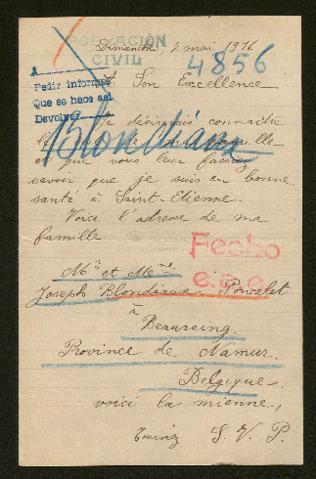 POBLACIÓN
CIVIL
Dimanche 7 mai 1916
4856
A
Pedir informes
Que se hace así
Devolver
A Son Excellence
Je désirerais connaître
Blondiaux
et que vous leur fassiez
savoir que je suis en bonne
santé à Saint-Etienne.
Voici l'adresse de ma
famille
Fecho
Mr et Me
Joseph Blondiaux Poncelet
à
Beauraing.
Province de Namur.
Belgique.
voici la mienne,
S. V. P.